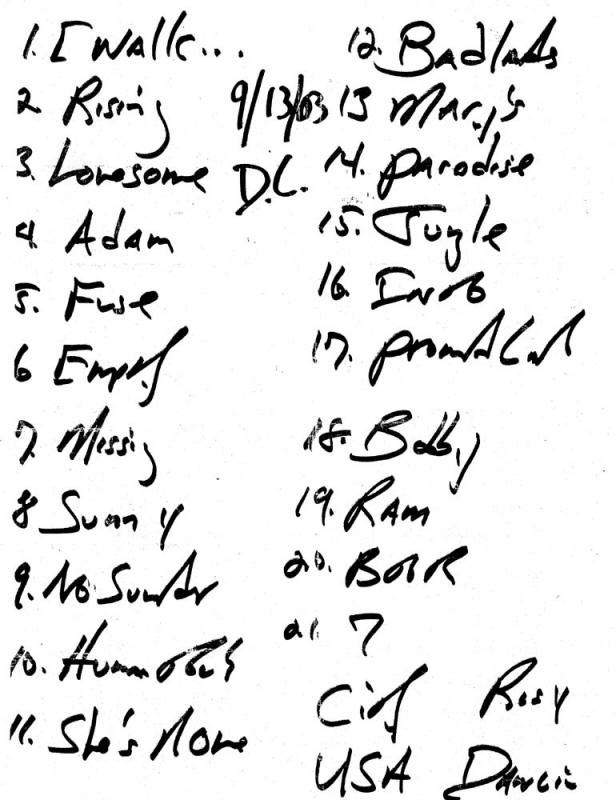 1. I walk...
2. Rising
3. Lonesome
4. Adam
5. Fuse
6 Empty
7. Missing
8 Sunny
9. No Surrender
10.
11. She's Alone
9/13/03
D.C.
12. Badlands
13 Mary's
14. Paradise
15. Jungle
16.
17. Promised Land
18. Bobby
19. Ram
20. BOTR
21. 7
City Rosy
USA Dancin